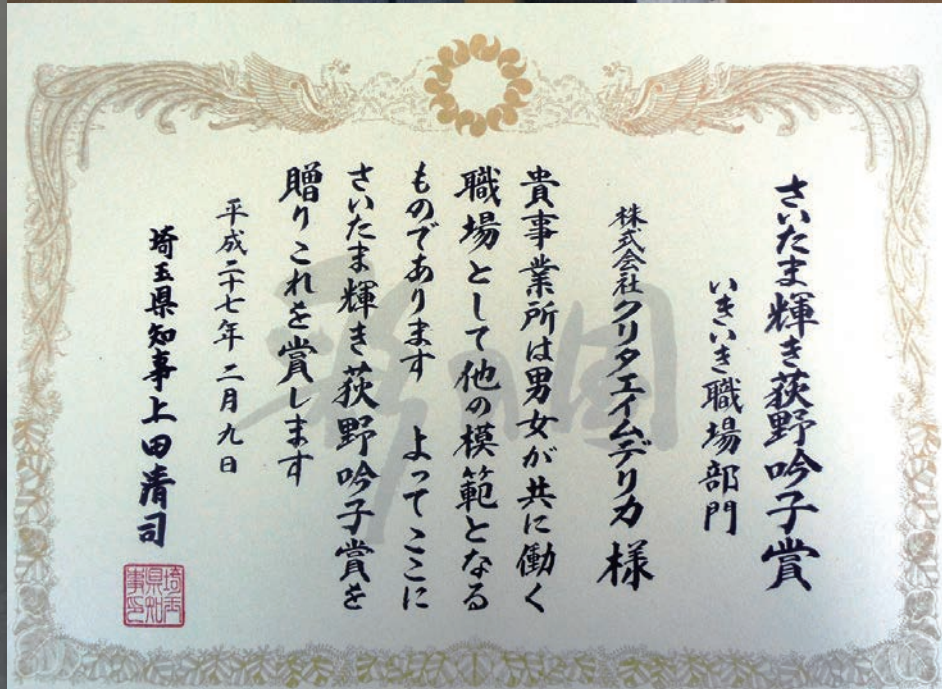 さいたま輝き荻野吟子賞
いきいき職場部門
株式会社クリタエイムデリカ 様
貴事業所は男女が共に働く
職場として他の模範となる
ものであります よってここに
さいたま輝き荻野吟子賞を
贈りこれを賞します
平成二十七年二月九日
埼玉県知事上田清司
埼玉
県知
事印
彩の国